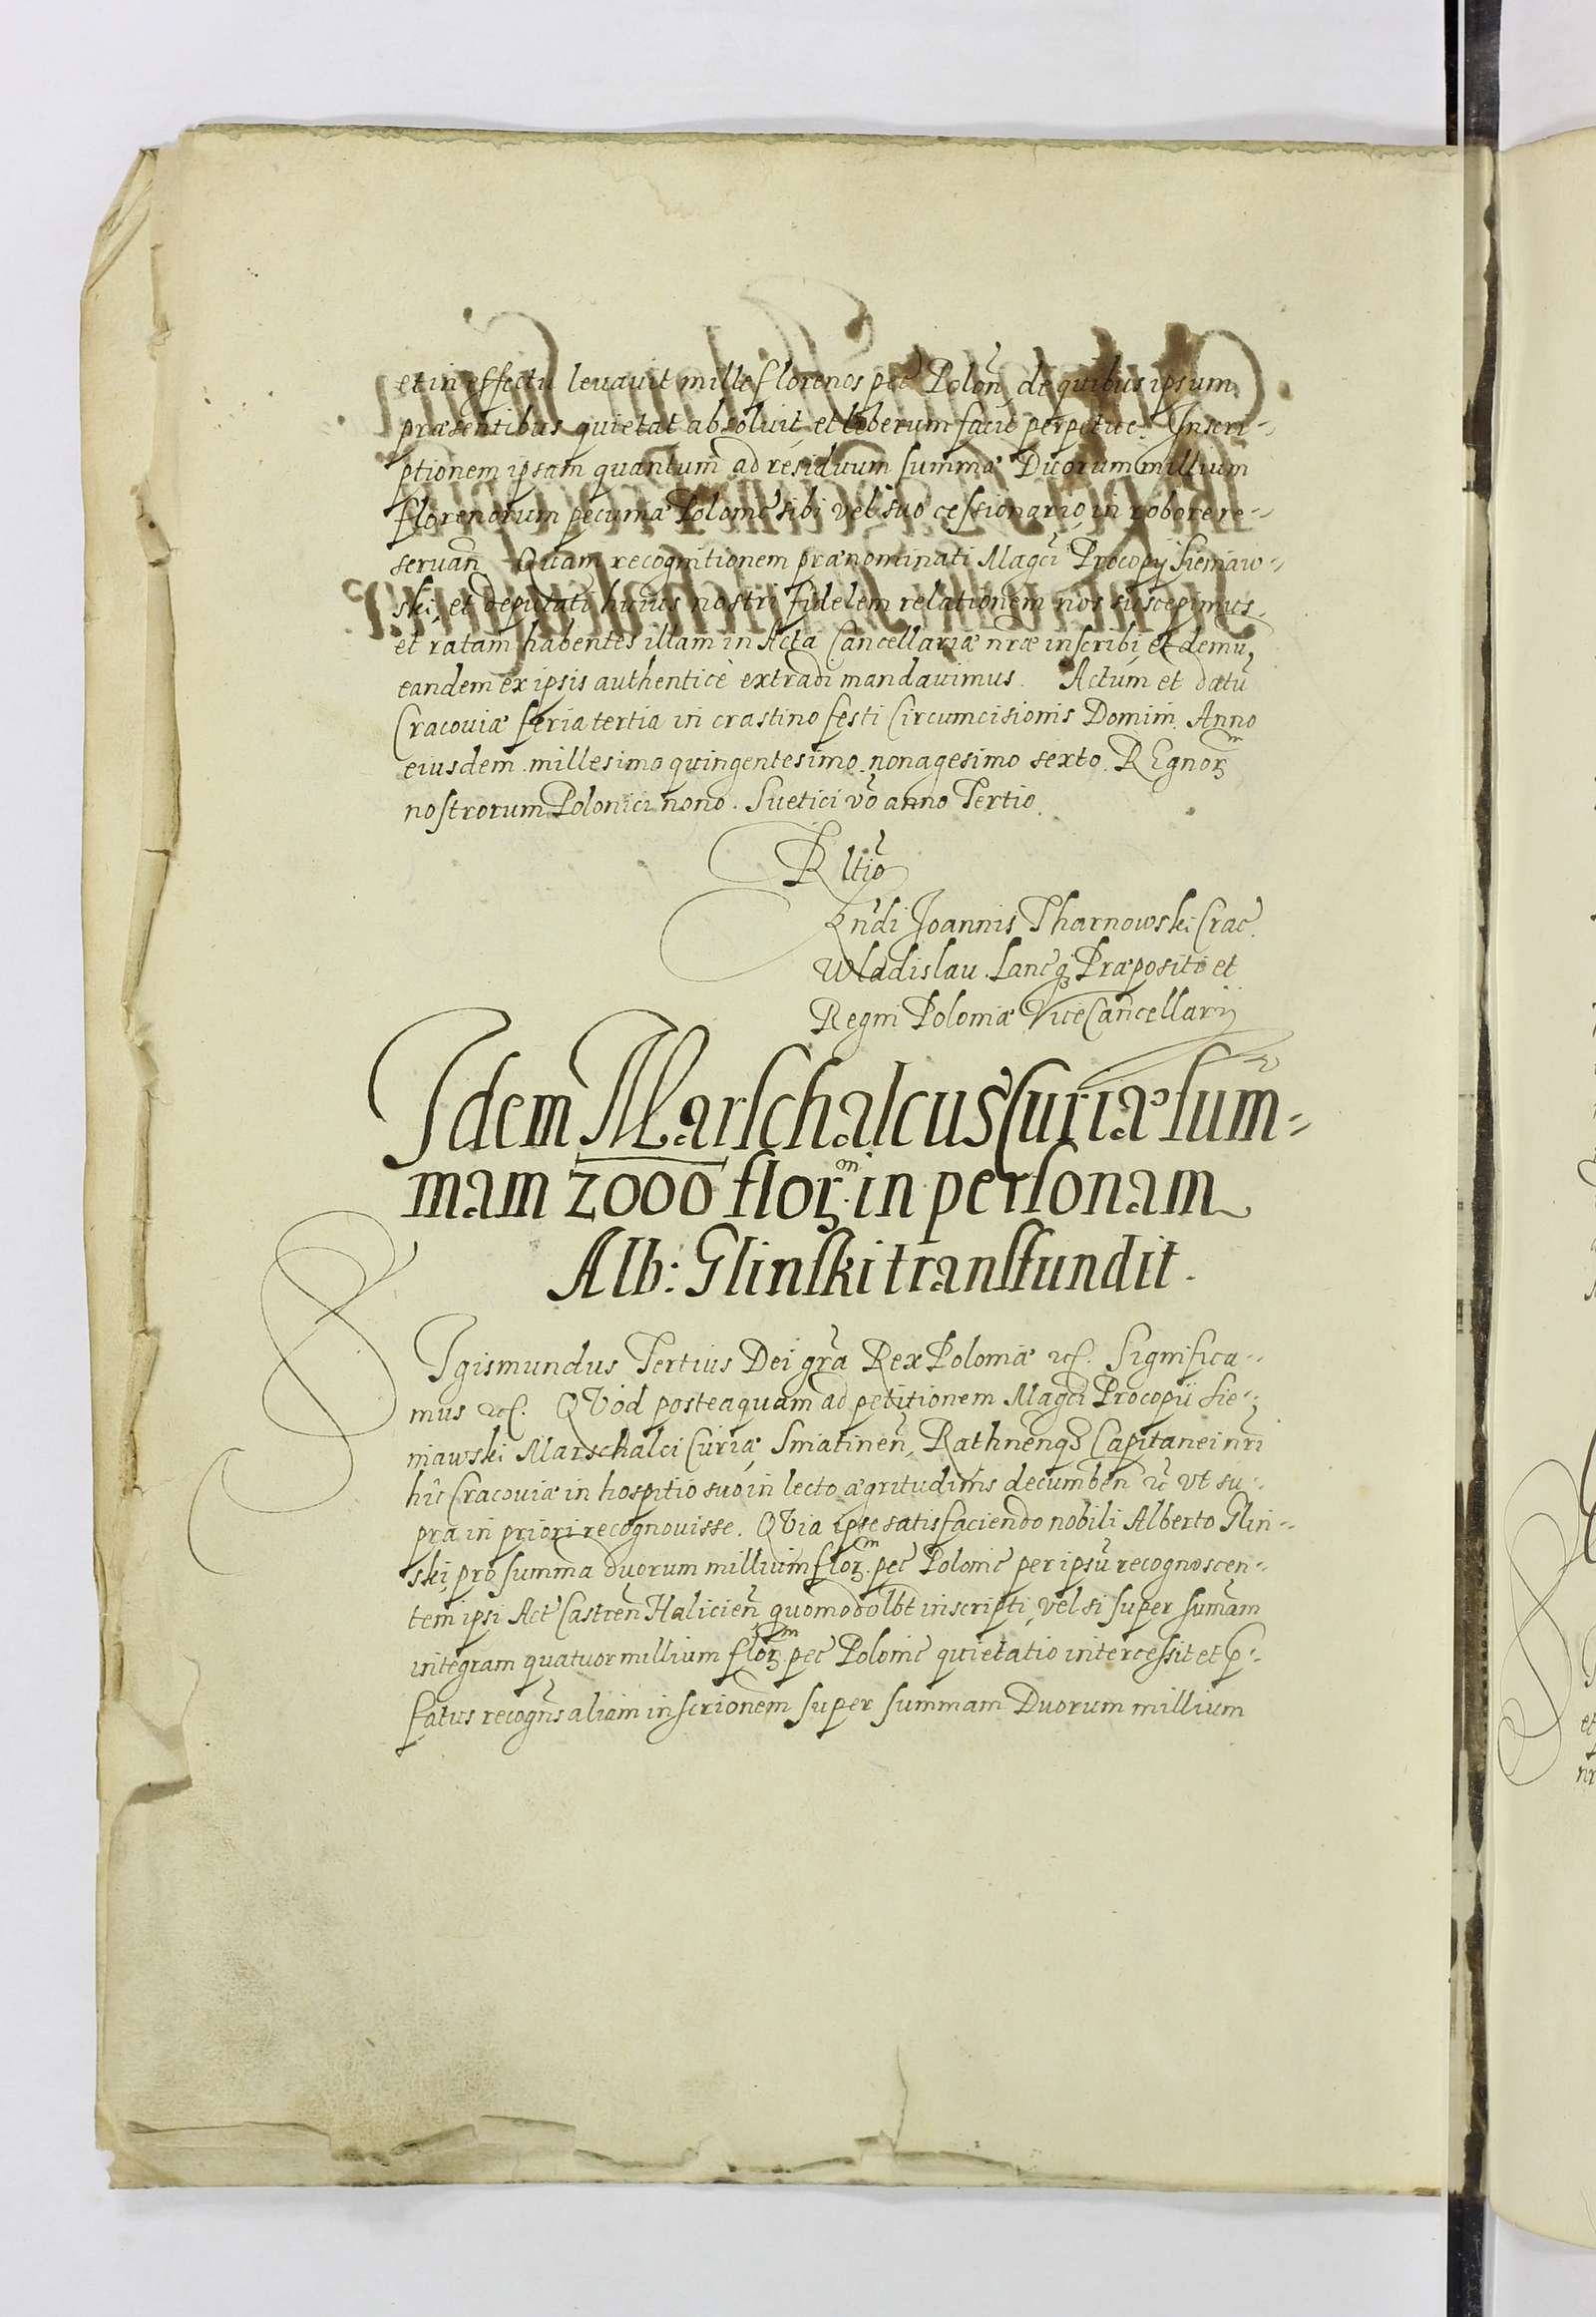 et in effectu levavit mille florenos pec̃ Polon̄, de quibus ipsum
præsentibus quietat absolvit, et liberum facit perpetue. Inscri-
ptionem ipsam quantum ad residuum summæ Duorum millium
florenorum pecuniæ Polonic̃ sibi vel suo cessionario, in robore re-
servan̄ Quam recognitionem prænominati Magc̃i Procopij Sieniaw-
ski, et deputati huius nostri fidelem relationem nos suscepimus,
et ratam habentes illam in Acta Cancellariæ nr̃æ inscribi, et demũ
eandem ex ipsis authenticè extradi mandavimus. Actum et datũ
Cracoviæ feria tertia in crastino festi Circumcisionis Domini Anno
eiusdem millesimo quingentesimo nonagesimo sexto. REgnorꝫ
nostrorum Polonici nono. Suetici vo̅ anno Tertio.
Rltio̅
Rn̄di Joannis Tharnowski Crac̃.
Wladislav. Lanc̃qꝫ Præpositi et
Regni Poloniæ ViceCancellarij
Idem Marschalcus Curiæ sum-
mam 2000 florꝫ in personam
Alb: Glinski transfundit.
SIgismundus Tertius Dei gr̃a Rex Poloniæ ⁊c. Significa-
mus ⁊c. QVod posteaquam ad petitionem Magc̃i Procopii Sie-
niawski Marschalci Curiæ, Sniatinen̄, Rathnen̄qꝫ Capitanei nr̃i
hic Cracoviæ in hospitio suo in lecto ægritudinis decumben̄ ⁊c̃ ut su-
pra in priori recognovisse. QVia ipse satisfaciendo nobili Alberto Glin-
ski, pro summa duorum millium florꝫ. pec̃ Polonic̃ per ipsũ recognoscen-
tem ipsi Act̃ Castren̄ Halicien̄ quomodolbt̃ inscripti, vel si super sum̄am
integram quatuor millium florꝫ. pec̃ Polonic̃ quietatio intercessit et ꝑ-
fatus recogn̄s aliam inscrio̅nem super summam Duorum millium